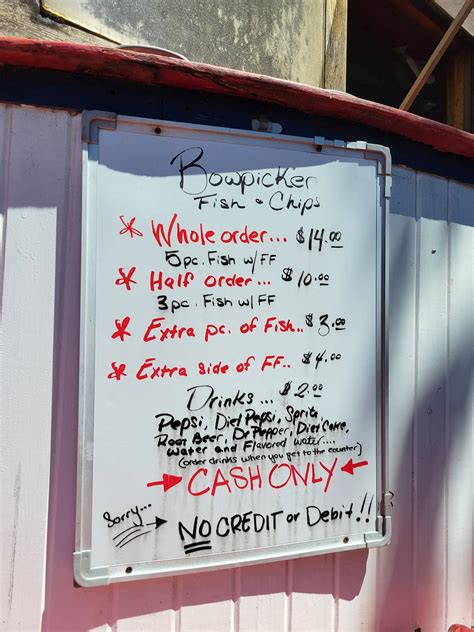 Bowpicker
Fish & Chips
* Whole order... $14.00
5pc. Fish w/FF
* Half order... $10.00
3pc. Fish w/FF
* Extra pc. of Fish.. $3.00
* Extra side of FF.. $4.00
Drinks... $2.00
Pepsi, Diet Pepsi, Sprite,
Root Beer, Dr Pepper, Diet Coke,
Water and Flavored Water....
(order drinks when you get to the counter)
→ CASH ONLY ←
Sorry... → NO CREDIT or Debit!!